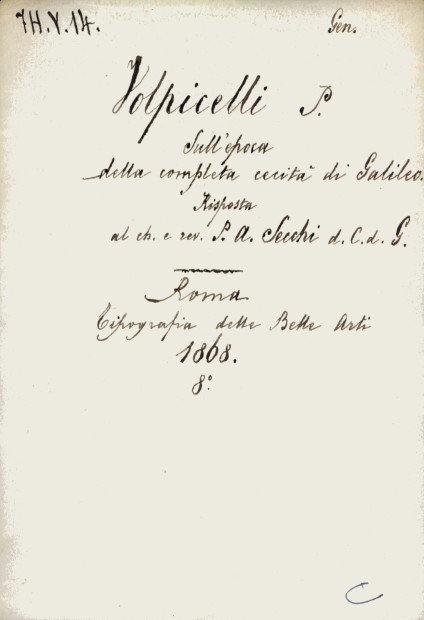 7H.V.14. Gen.
Volpicelli P.
Sull'epoca
della completa cecità di Galileo.
Risposta
al ch. e rev. P. A. Secchi d. C. d. G.
Roma
Tipografia delle Belle Arti
1868.
8°.
C